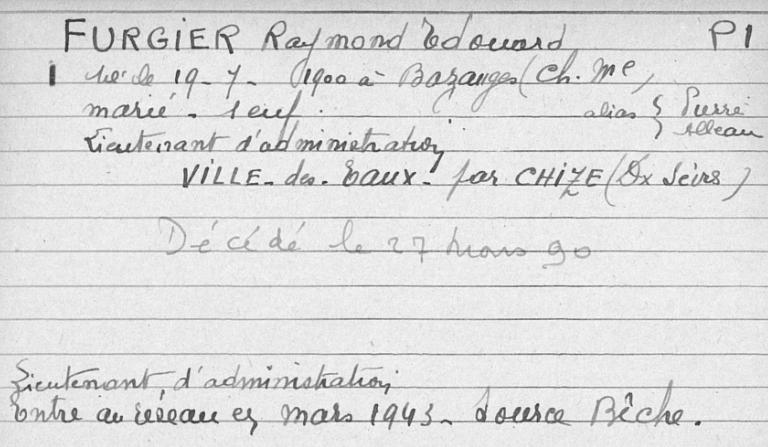 FURGIER Raymond Edouard P1
1 né le 19-7-1900 à Bazauges (Ch. Me,
marié - 1 enf. alias { Pierre
Alleau
Lieutenant d'administration
VILLE-des-Eaux. par CHIZE (Dx Sèvres)
Décédé le 27 mars 90
Lieutenant d'administration
Entre au réseau en mars 1943 - Source Bêche.